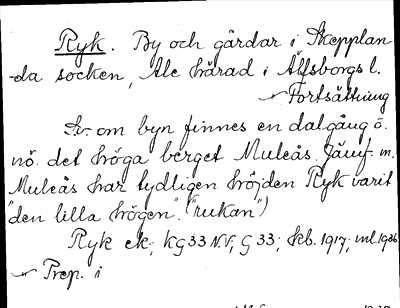 Ryk. By och gårdar i Skepplan-
da socken, Ale härad i Älfsborgs l.
Fortsättning
Sv. om byn finnes en dalgång ö.
nö. det höga berget Muleås. Jämf. m.
Muleås har tydligen höjden Ryk varit
"den lilla högen". ("rukan")
Ryk ek; KG33 NV; G 33; skb. 1917; inl. 1936
Prep. i